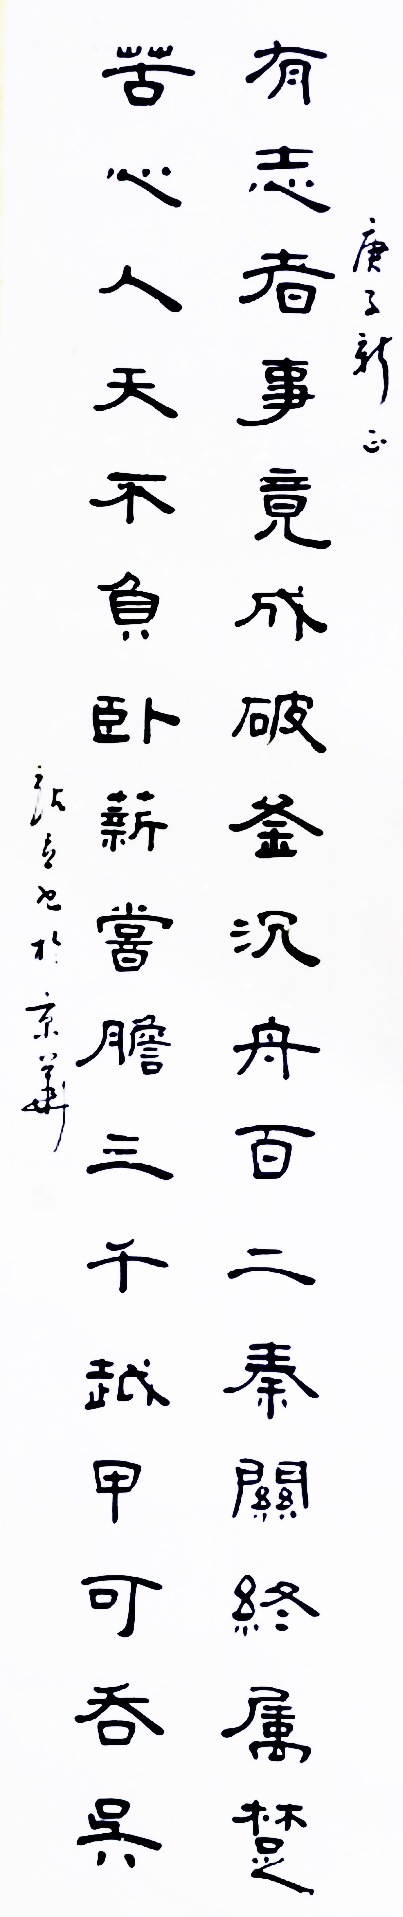 庚子新正
有志者事竟成破釜沉舟百二秦關終属楚
苦心人天不負卧薪嘗膽三千越甲可吞吳
於京華